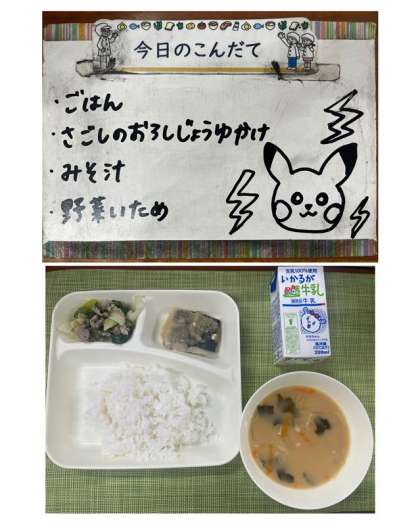 今日のこんだて
・ごはん
・さごしのおろしじょうゆかけ
・みそ汁
・野菜いため
生乳100%使用
いかるが
牛乳
200ml